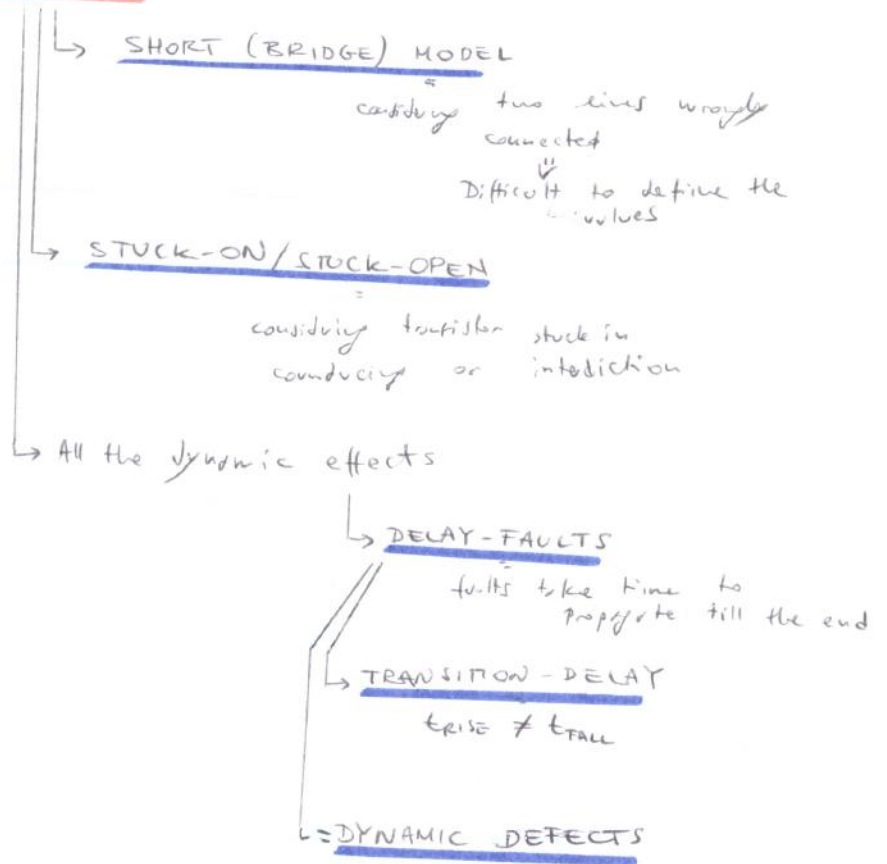 SHORT (BRIDGE) MODEL
considering two lines wrongly
connected
Difficult to define the
values
STUCK-ON/STUCK-OPEN
considring transistor stuck in
counducing or intediction
All the dynamic effects
DELAY-FAULTS
faults take time to
propagate till the end
TRANSITION-DELAY
tRISE ≠ tFALL
= DYNAMIC DEFECTS